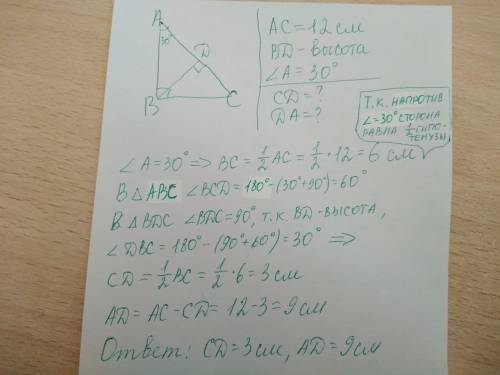 A
30°
D
B
C
AC = 12 см
BD - высота
∠A = 30°
CD = ?
DA = ?
Т.К. НАПРОТИВ
∠=30° СТОРОНА
РАВНА 1/2 ГИПО-
ТЕНУЗЫ
∠A = 30° => BC = 1/2 AC = 1/2 · 12 = 6 см
В △ ABC ∠BCD = 180° - (30° + 90°) = 60°
В △ BDC ∠BDC = 90°, т.к. BD - высота,
∠DBC = 180° - (90° + 60°) = 30° =>
CD = 1/2 BC = 1/2 · 6 = 3 см
AD = AC - CD = 12 - 3 = 9 см
Ответ: CD = 3 см, AD = 9 см